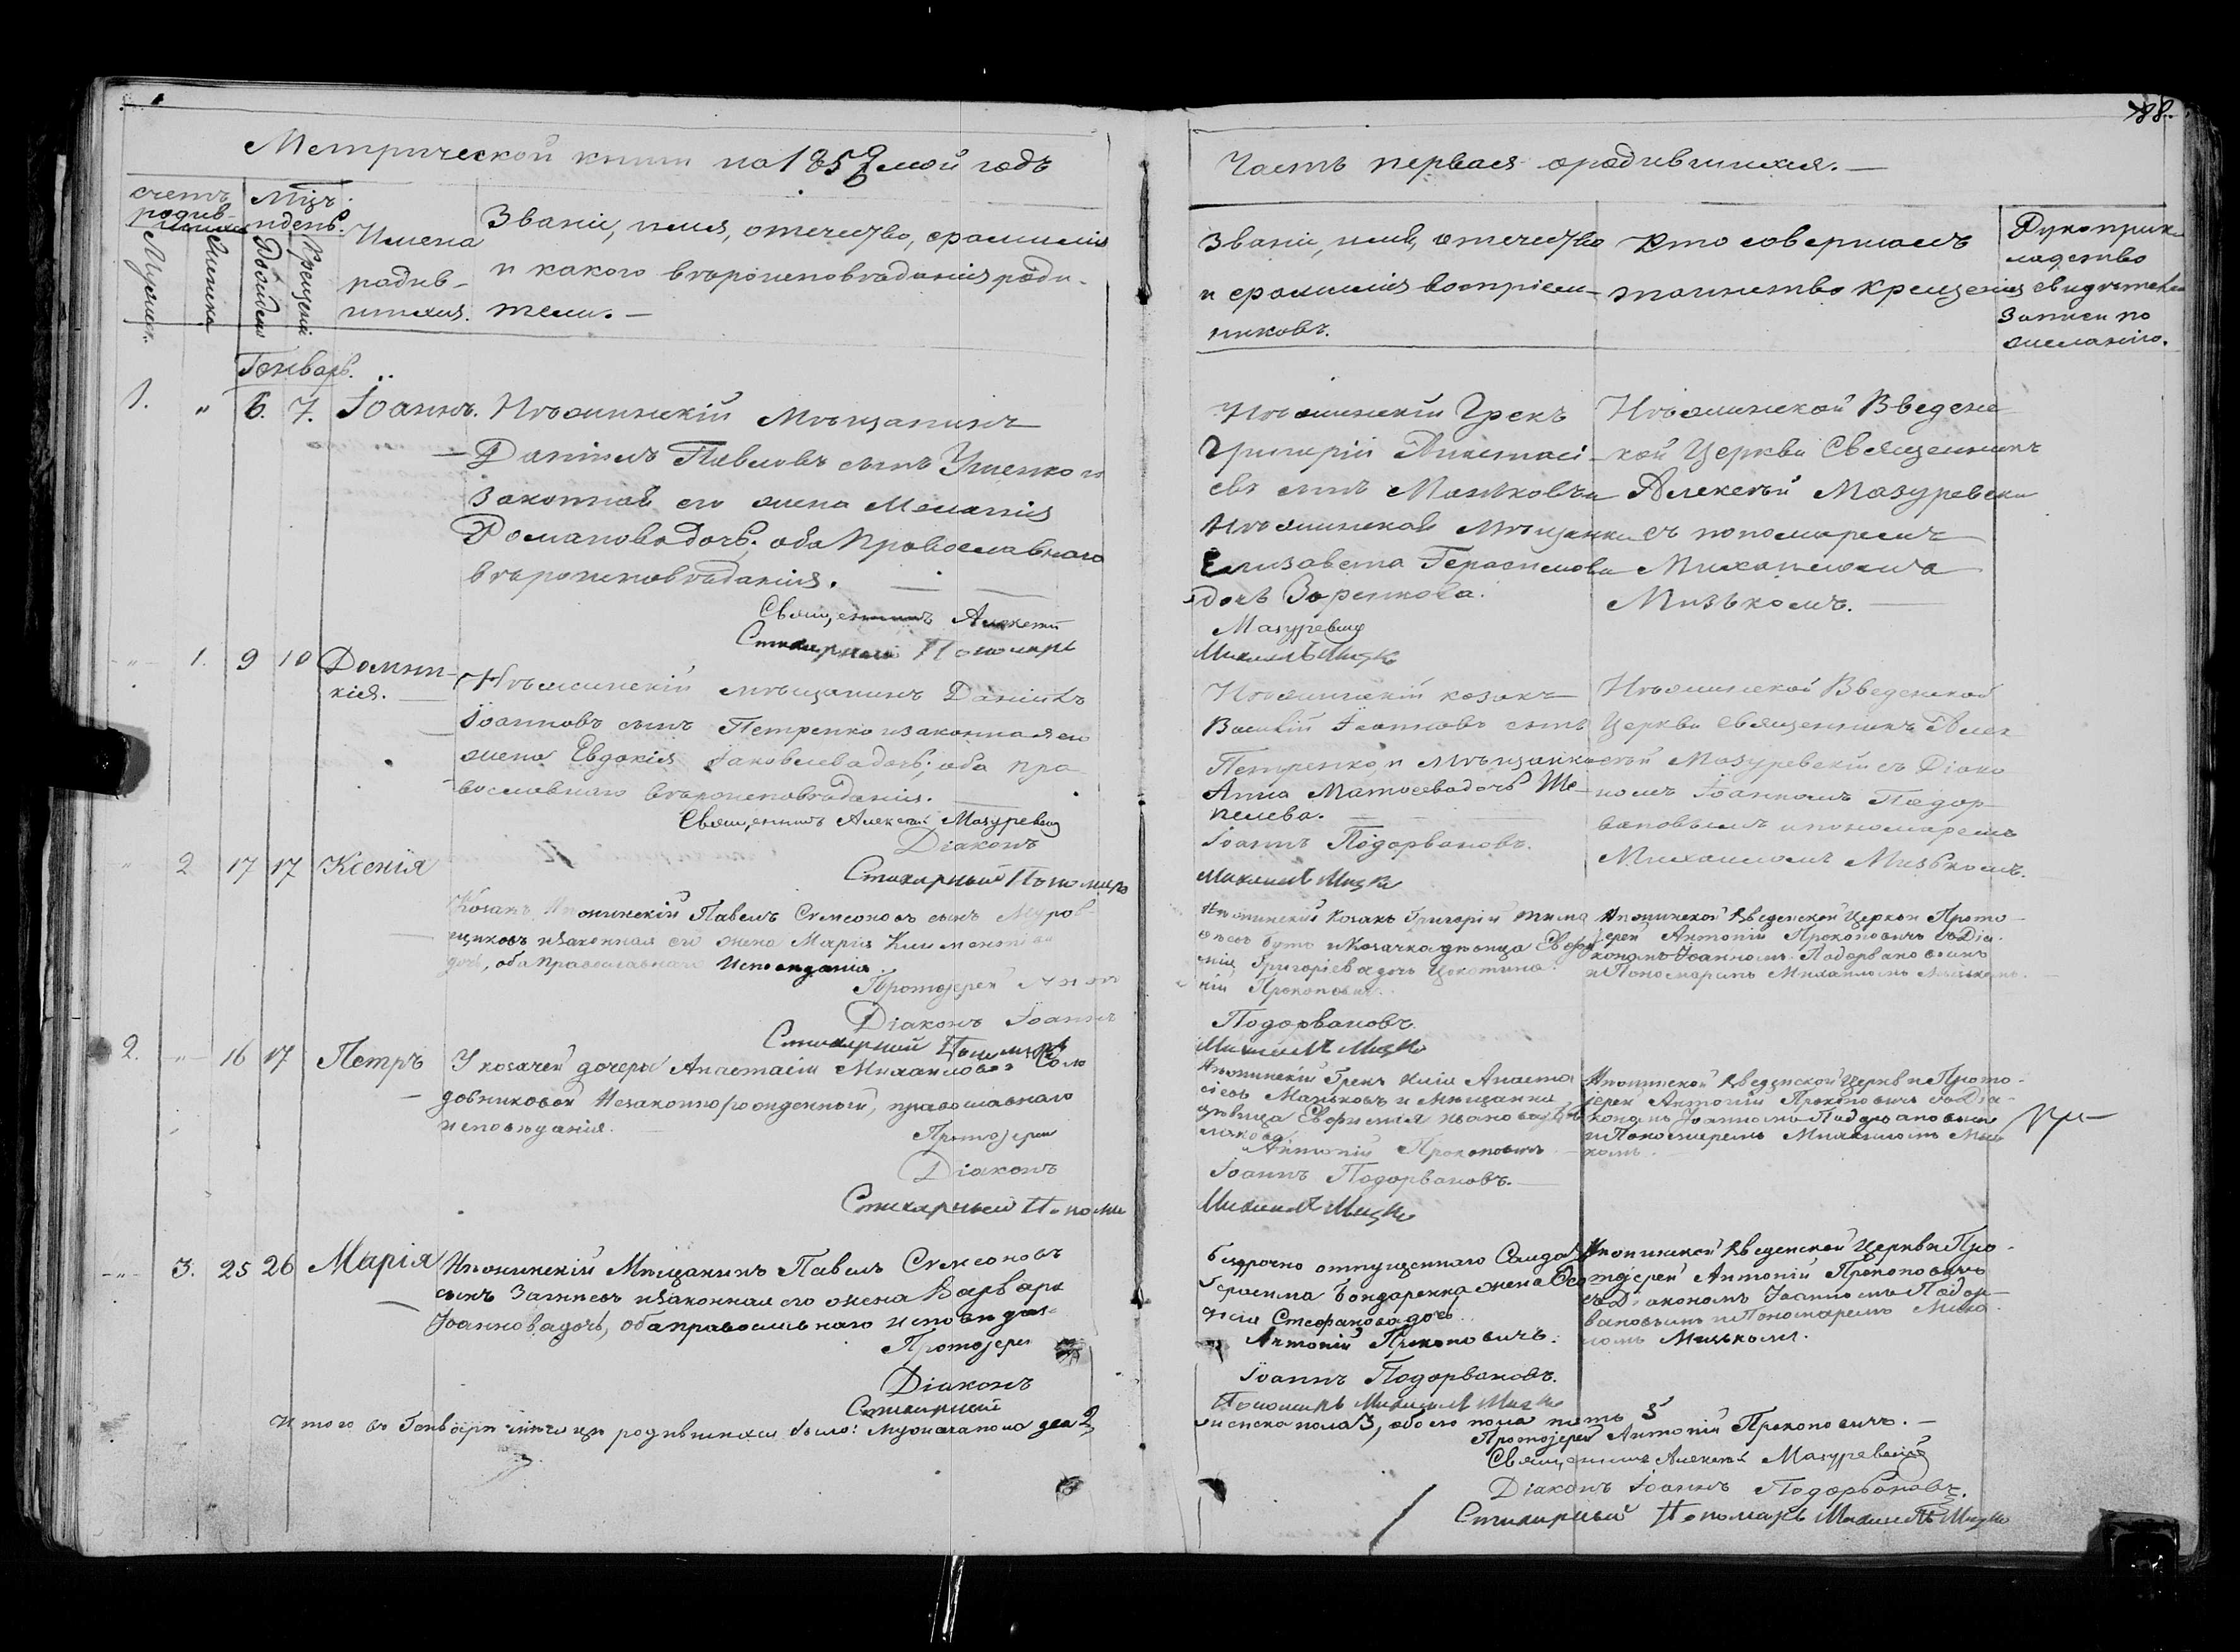 88.
Метрической книги на 185 мой годъ
Часть первая о родившихся.
счетъ родив-
шихся
Мужеск.
Женска
Мцъ
и день.
Рожденія
Крещенія
Имена
родив-
шихся.
Званіе, имя, отечество, фамилія
и какого вѣроисповѣданія роди-
тели. —
Званіе, имя, отечество
и фамилія воспріем-
никовъ.
Кто совершалъ
таинство крещенія
Рукоприк
ладство
свидѣтелей
записи по
желанію.
Генварь.
1. " 6. 7. Іоаннъ.
Нѣжинскій Мѣщанинъ
Даніилъ Павловъ сынъ и
законная его жена Меланія
Романова дочь. оба Православнаго
вѣроисповѣданія.
Священникъ Алексѣй
Стихарный Пономарь
Нѣжинскій Грекъ
Григорій Анастасі-
евъ сынъ Маньковъ и
Нѣжинская Мѣщанка
Елизавета Герасимова
дочь
Мазуревскій
Михаилъ Мизко
Нѣжинской Введенс
кой Церкви Священникъ
Алексѣй Мазуревскій
съ пономаремъ
Михаиломъ
Мизькомъ.
" 1. 9 10 Домни-
кія.
Нѣжинскій мѣщанинъ Даніилъ
Іоанновъ сынъ Петренко и законная его
жена Евдокія Іаковлева дочь; оба пра-
вославнаго вѣроисповѣданія.
Священникъ Алексѣй Мазуревскій
Діаконъ
Стихарный Пономарь
Нѣжинскій козакъ
Василій Іоанновъ сынъ
Петренко, и мѣщанка
Анна дочь Ше-
пелева.
Іоаннъ Подорвановъ.
Михаилъ Мизко
Нѣжинской Введенской
Церкви священникъ Алек
сѣй Мазуревскій съ Діако
номъ Іоанномъ Подор-
вановымъ и пономаремъ
Михаиломъ Мизькомъ.
" 2 17 17 Ксенія
Козакъ Нѣжинскій Павелъ Симеоновъ сынъ
и законная его жена Марія
дочь, оба Православнаго Исповѣданія.
Протоіерей Анто
Діаконъ Іоаннъ
Стихарный Пономарь
Нѣжинскій Козакъ Григорій
и Козачка дѣвица Евфи
мія Григоріева дочь
ній Прокоповичъ.
Подорвановъ.
Михаилъ Мизко
Нѣжинской Введенской Церкви Прото-
іерей Антоній Прокоповичъ съ Діа-
кономъ Іоанномъ Подорвановымъ
и Пономаремъ Михаиломъ Мизькомъ.
2. " 16 17 Петръ
У козачей дочери Анастасіи Михаиловой Соло
довниковой Незаконнорожденный, православнаго
исповѣданія.
Протоіерей
Діаконъ
Стихарный Пономар
Нѣжинскій Грекъ Илія Анаста
сіевъ Маньковъ и Мѣщанка
дѣвица Евфимія
Антоній Прокоповичъ
Іоаннъ Подорвановъ.
Михаилъ Мизко
Нѣжинской Введенской Церкви Прото-
іерей Антоній Прокоповичъ съ Діа-
кономъ Іоанномъ Подорвановымъ
и Пономаремъ Михаиломъ Мизь
комъ.
" 3. 25 26 Марія
Нѣжинскій Мѣщанинъ Павелъ Симеоновъ
сынъ и законная его жена Варвара
Іоаннова дочь, оба православнаго исповѣдан
Протоіерей
Діаконъ
Стихарный
безсрочно отпущеннаго Солда
Герасима Бондаренка жена
Стефанова дочь
Антоній Прокоповичъ.
Іоаннъ Подорвановъ.
Пономарь Михаилъ Мизко
Нѣжинской Введенской Церкви Про-
тоіерей Антоній Прокоповичъ
съ Діакономъ Іоанномъ Подор-
вановымъ и Пономаремъ Миха
ломъ Мизькомъ.
Итого въ Генварѣ мѣсяцѣ родившихся было: мужеска пола два 2,
женска пола 3, обоего пола пять 5
Протоіерей Антоній Прокоповичъ. —
Священникъ Алексѣй Мазуревскій
Діаконъ Іоаннъ Подорвановъ.
Стихарный Пономарь Михаилъ Мизко